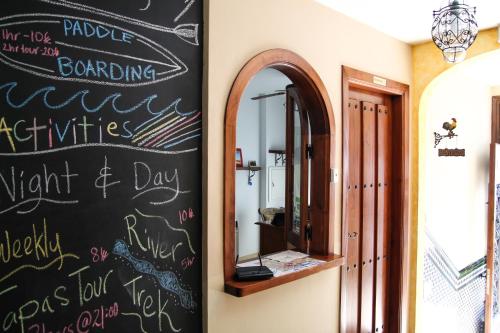 PADDLE
1hr - 10€
2hr tour - 20€
BOARDING
Activities
Night & Day
Weekly
8€
River
10€
5€
Tapas Tour
Trek
@ 21:00